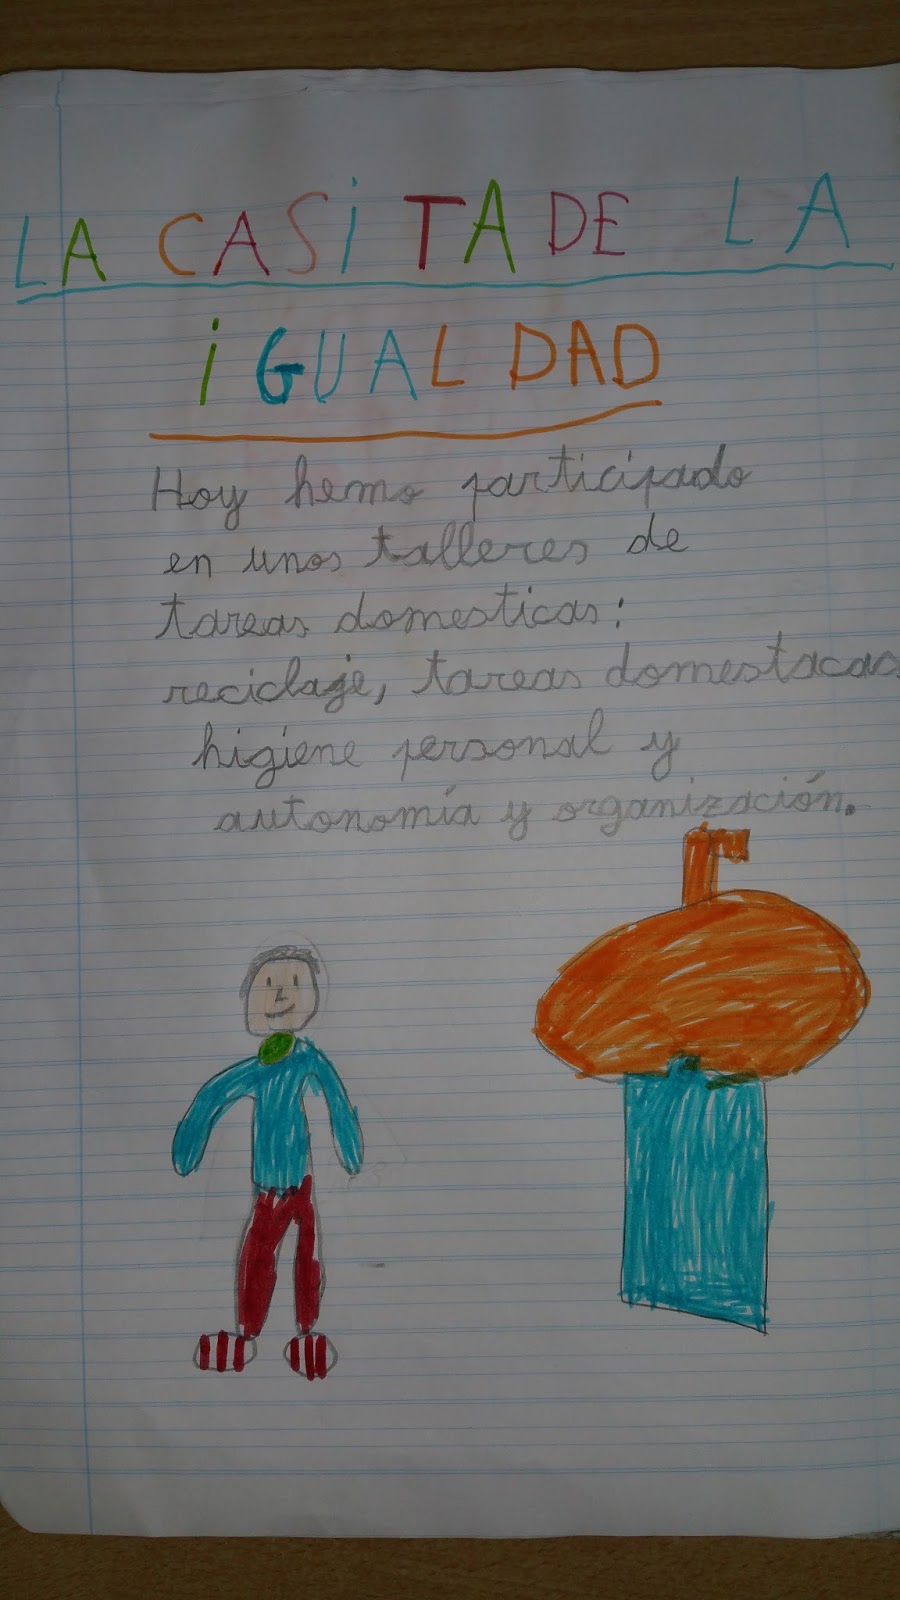 LA CASiTA DE LA
iGUALDAD
Hoy hemo participado
en unos talleres de
tareas domesticas:
reciclaje, tareas domestacas
higiene personal y
autonomía y organización.